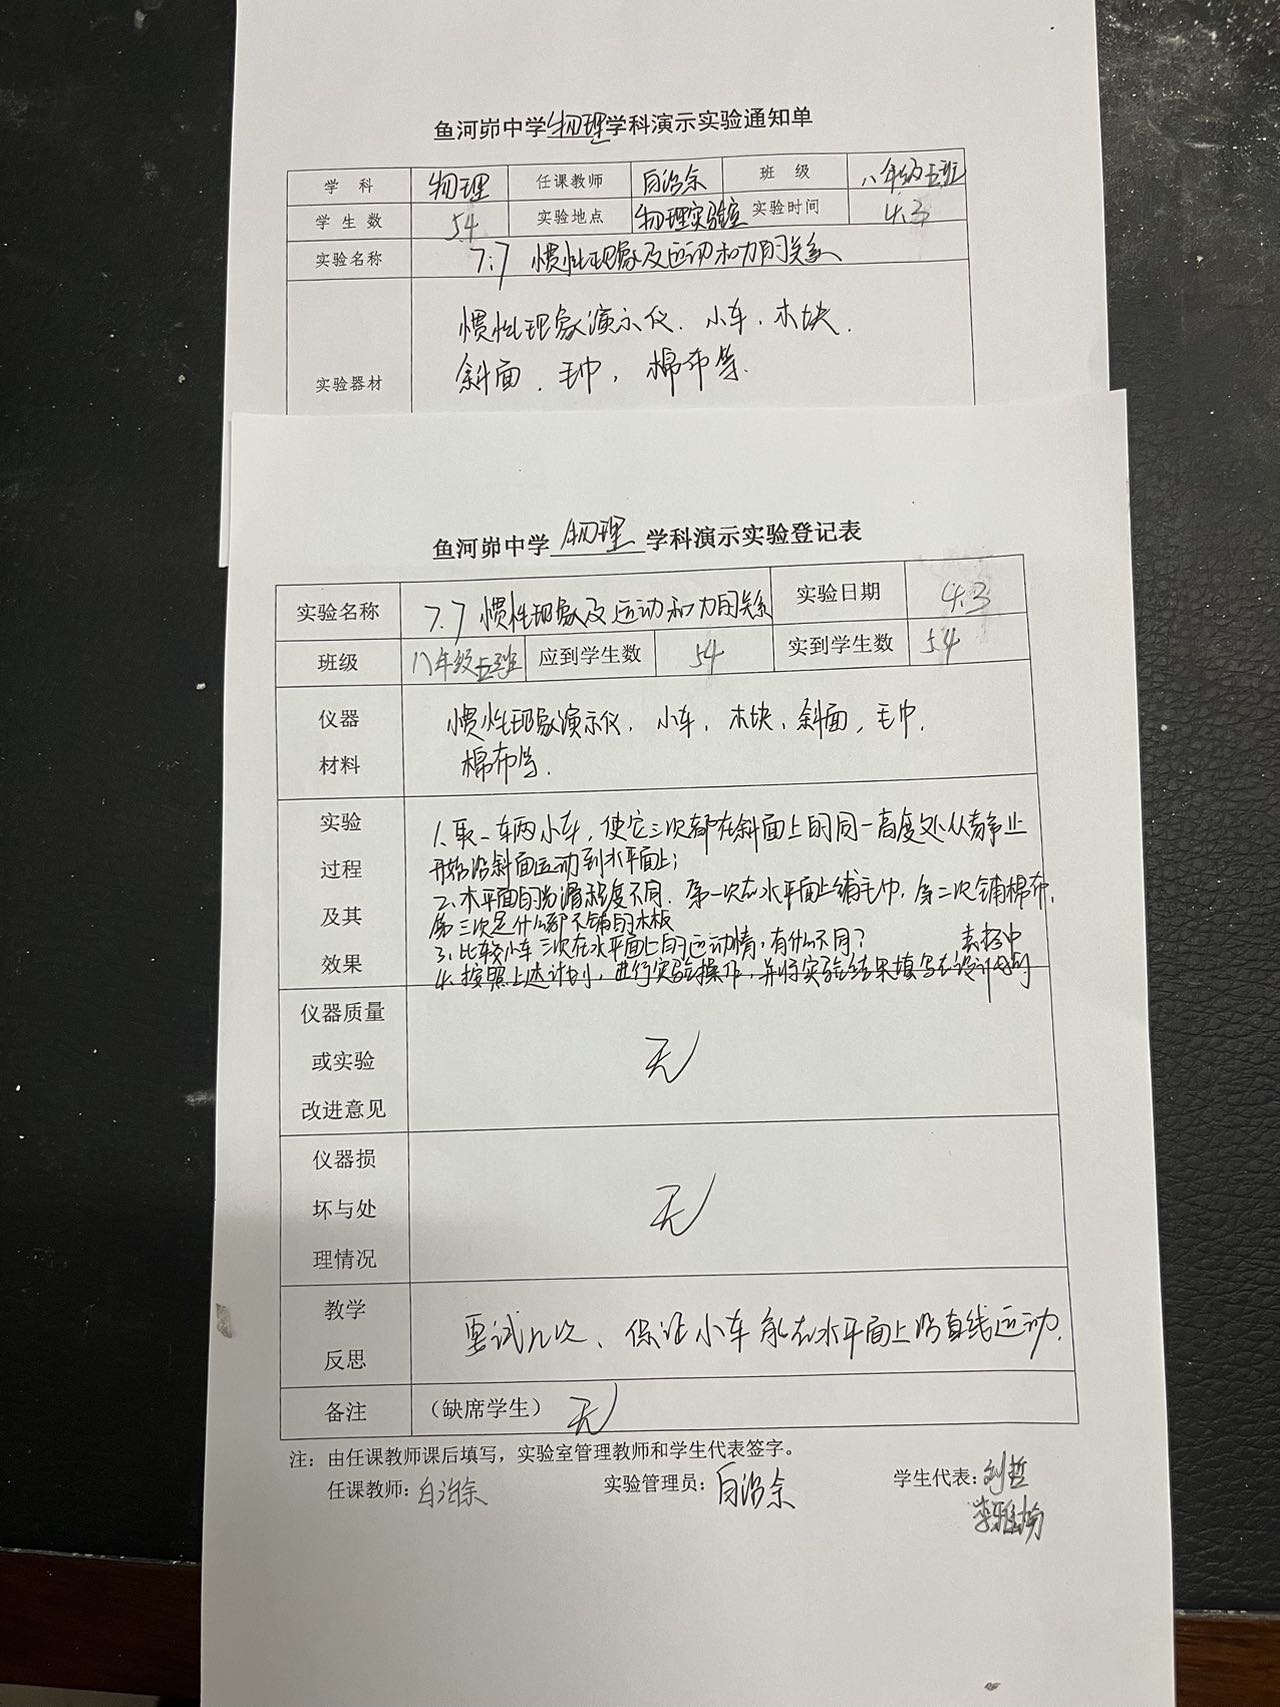 鱼河峁中学物理学科演示实验通知单
学 科 物理 任课教师 白治余 班 级 八年级五班
学 生 数 54 实验地点 物理实验室 实验时间 4.3
实验名称 7.7 惯性现象及运动和力的关系
惯性现象演示仪、小车、木块、
实验器材 斜面、毛巾、棉布等.
鱼河峁中学 物理 学科演示实验登记表
实验名称 7.7 惯性现象及运动和力的关系 实验日期 4.3
班级 八年级五班 应到学生数 54 实到学生数 54
仪器 惯性现象演示仪、小车、木块、斜面、毛巾、
材料 棉布等.
实验
过程
及其
效果
1、取一车两小车,使它三次都在斜面上的同一高度处从静止
开始沿斜面运动到水平面上;
2、水平面的光滑程度不同.第一次在水平面上铺毛巾,第二次铺棉布,
第三次是什么都不铺的木板
3、比较小车三次在水平面上的运动情,有什么不同?
4、按照上述计划,进行实验操作,并将实验结果填写在设计的
表格中
仪器质量
或实验
改进意见
无
仪器损
坏与处
理情况
无
教学
反思
要试几次、保证小车能在水平面上沿直线运动.
备注 (缺席学生) 无
注:由任课教师课后填写,实验室管理教师和学生代表签字。
任课教师: 白治余 实验管理员: 白治余 学生代表: 刘哲